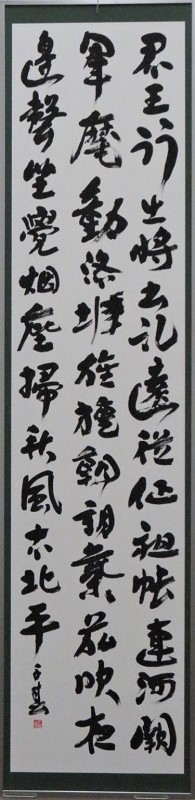 君王行出將書記遠從征祖帳連河闕
軍麾動洛城旌旗朝朔氣笳吹夜
邊聲坐覺烟塵掃秋風古北平